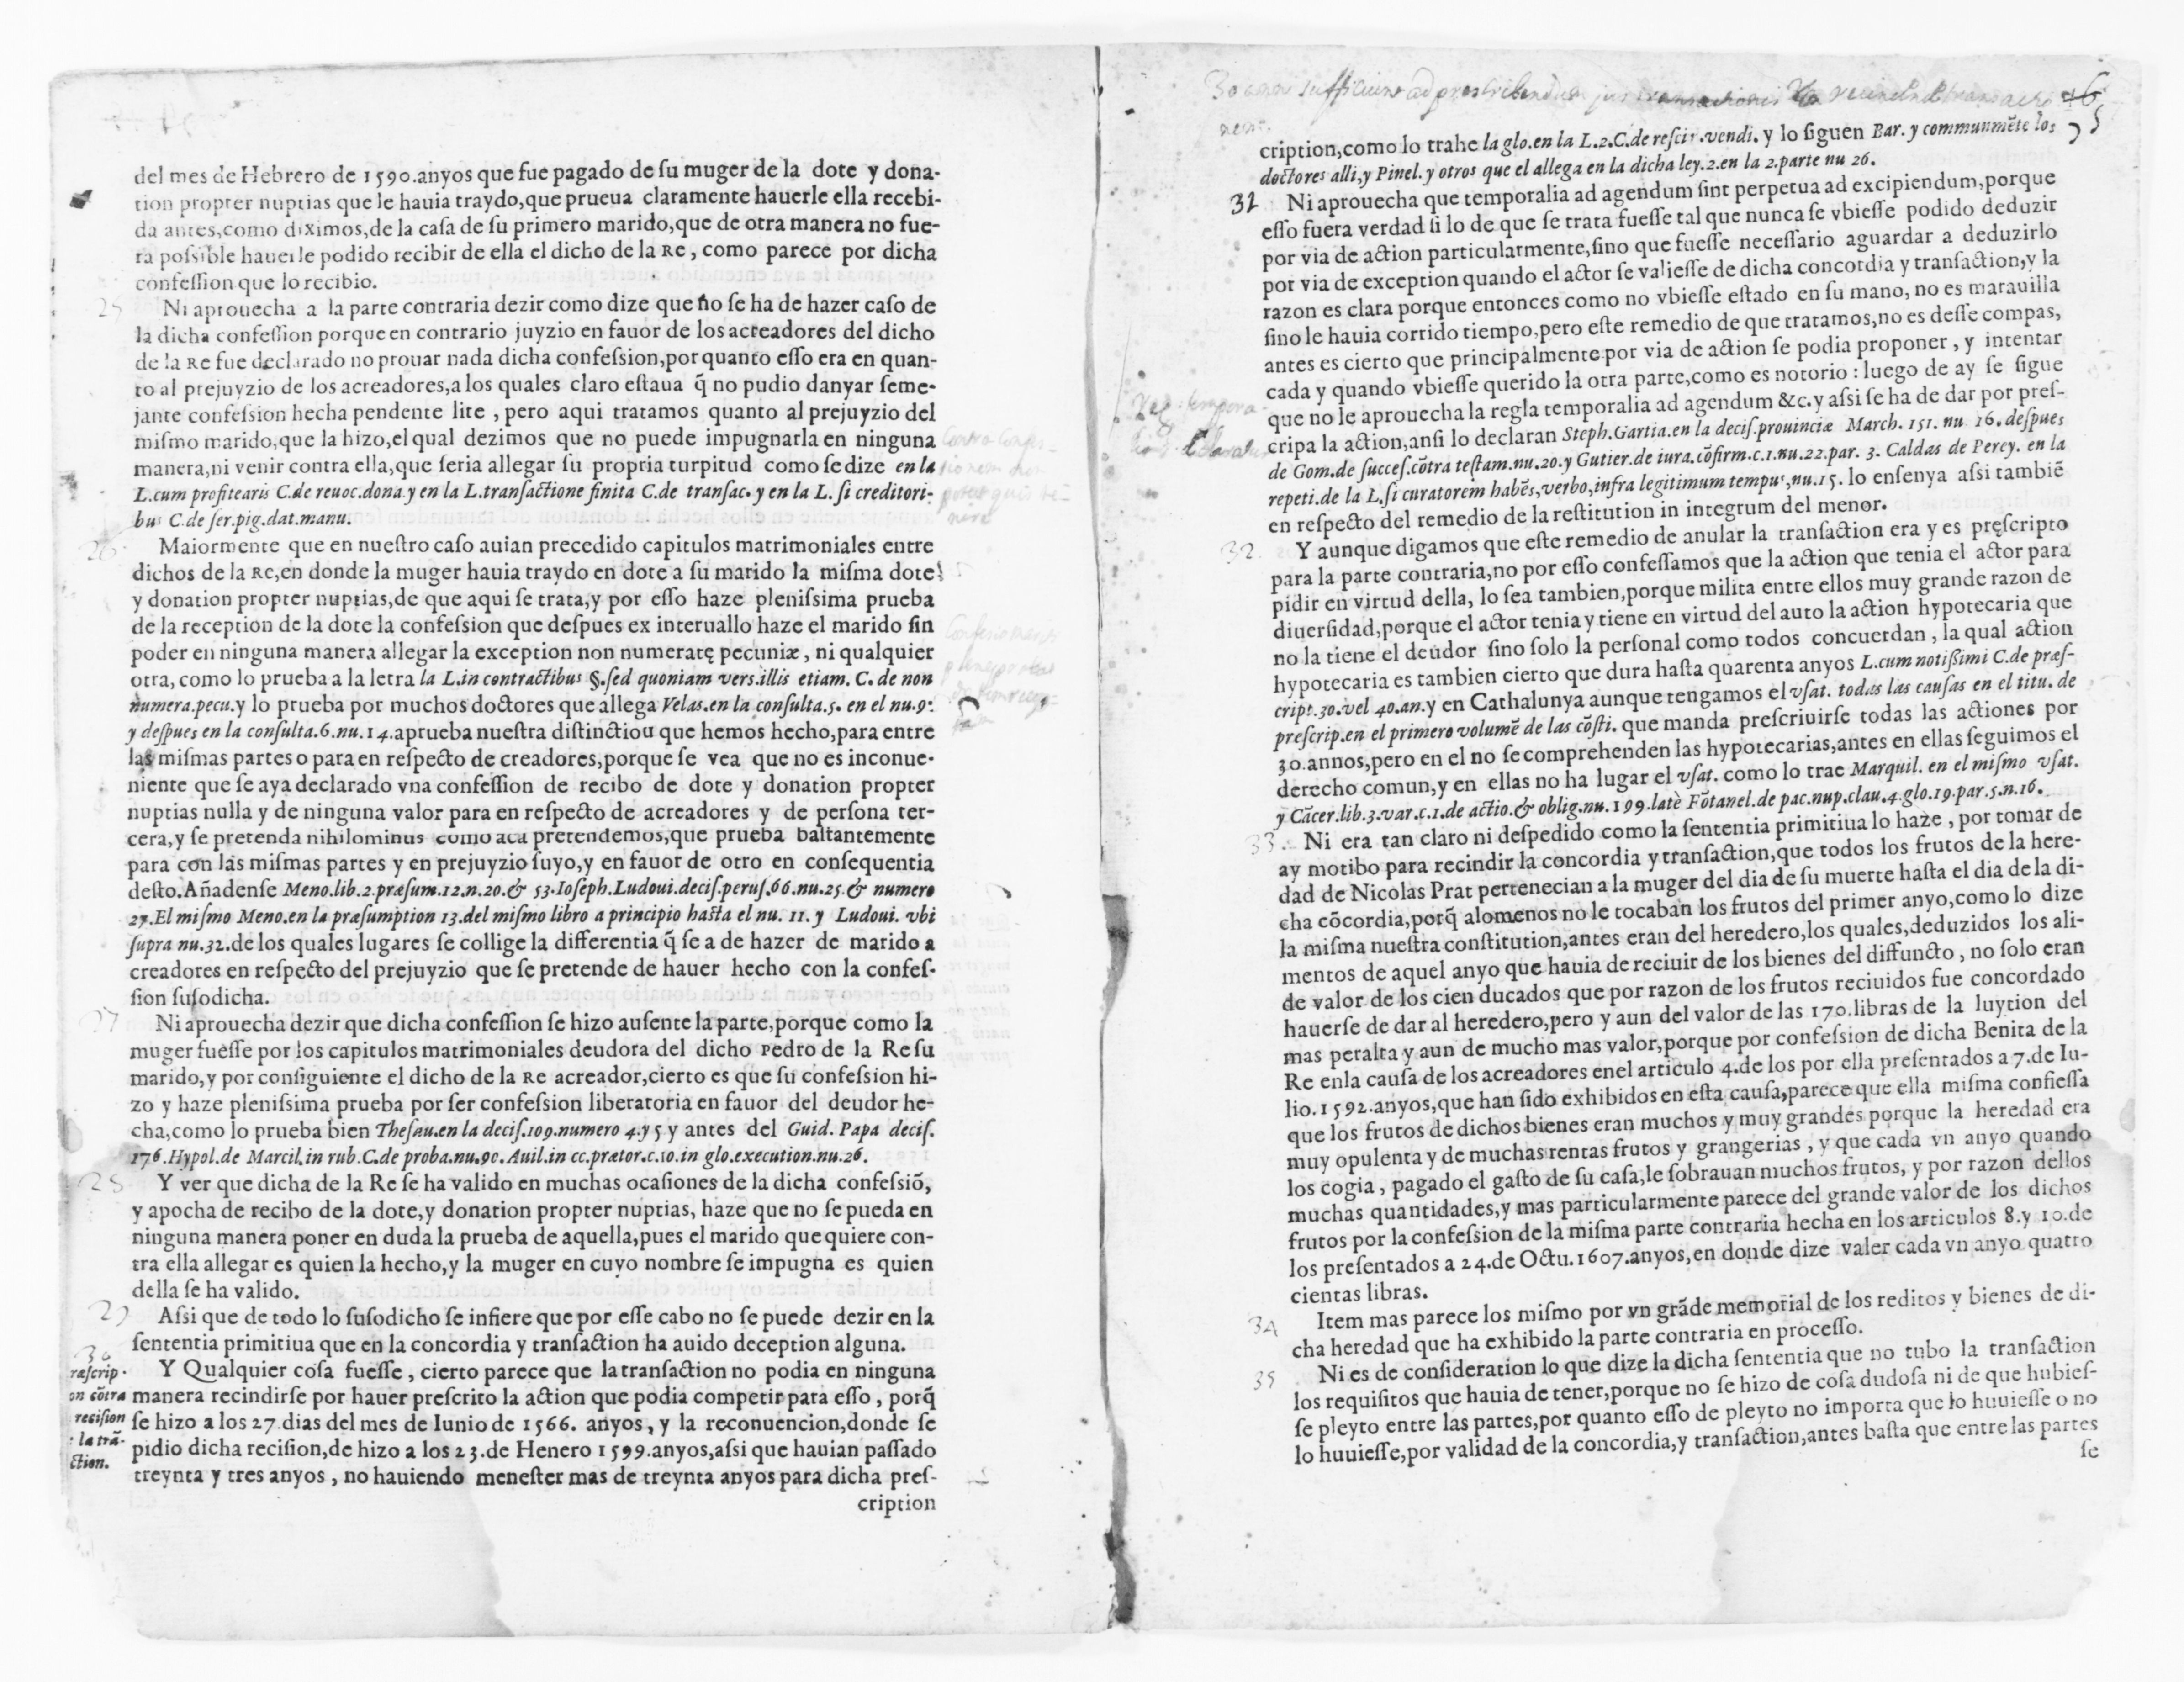 del mes de Hebrero de 1590.anyos que fue pagado de ſu muger de la dote y dona-
tion propter nuptias que le hauia traydo,que prueua claramente hauerle ella recebi-
da antes,como diximos,de la caſa de ſu primero marido,que de otra manera no fue-
ra poſsible hauerle podido recibir de ella el dicho de la Re, como parece por dicha
confeſſion que lo recibio.
25
Ni aprouecha a la parte contraria dezir como dize que no ſe ha de hazer caſo de
la dicha confeſſion porque en contrario juyzio en fauor de los acreadores del dicho
de la Re fue declarado no prouar nada dicha confeſsion,por quanto eſſo era en quan-
to al prejuyzio de los acreadores,a los quales claro eſtaua q̃ no pudio danyar ſeme-
jante confeſsion hecha pendente lite , pero aqui tratamos quanto al prejuyzio del
miſmo marido,que la hizo,el qual dezimos que no puede impugnarla en ninguna
manera,ni venir contra ella,que ſeria allegar ſu propria turpitud como ſe dize en la
L.cum profitearis C.de reuoc.dona.y en la L.tranſactione finita C.de tranſac. y en la L. ſi creditori-
bus C.de ſer.pig.dat.manu.
26
Maiormente que en nueſtro caſo auian precedido capitulos matrimoniales entre
dichos de la Re,en donde la muger hauia traydo en dote a ſu marido la miſma dote
y donation propter nuptias,de que aqui ſe trata,y por eſſo haze pleniſsima prueba
de la reception de la dote la confeſsion que deſpues ex interuallo haze el marido ſin
poder en ninguna manera allegar la exception non numeratę pecuniæ, ni qualquier
otra, como lo prueba a la letra la L.in contractibus §.ſed quoniam verſ.illis etiam. C. de non
numera.pecu.y lo prueba por muchos doctores que allega Velas.en la conſulta.5. en el nu.9.
y deſpues en la conſulta.6.nu.14.aprueba nueſtra diſtinctiou que hemos hecho,para entre
las miſmas partes o para en reſpecto de creadores,porque ſe vea que no es inconue-
niente que ſe aya declarado vna confeſſion de recibo de dote y donation propter
nuptias nulla y de ninguna valor para en reſpecto de acreadores y de perſona ter-
cera,y ſe pretenda nihilominus como aca pretendemos,que prueba baſtantemente
para con las miſmas partes y en prejuyzio ſuyo,y en fauor de otro en conſequentia
deſto.Añadenſe Meno.lib.2.præſum.12.n.20.& 53.Ioſeph.Ludoui.deciſ.peruſ.66.nu.25.& numero
27.El miſmo Meno.en la præſumption 13.del miſmo libro a principio haſta el nu. 11. y Ludoui. vbi
ſupra nu.32.de los quales lugares ſe collige la differentia q̃ ſe a de hazer de marido a
creadores en reſpecto del prejuyzio que ſe pretende de hauer hecho con la confeſ-
ſion ſuſodicha.
27
Ni aprouecha dezir que dicha confeſſion ſe hizo auſente la parte,porque como la
muger fueſſe por los capitulos matrimoniales deudora del dicho Pedro de la Re ſu
marido,y por conſiguiente el dicho de la Re acreador,cierto es que ſu confeſsion hi-
zo y haze pleniſsima prueba por ſer confeſsion liberatoria en fauor del deudor he-
cha,como lo prueba bien Theſau.en la deciſ.109.numero 4.y 5 y antes del Guid. Papa deciſ.
176.Hypol.de Marcil.in rub.C.de proba.nu.90. Auil.in cc.prætor.c.10.in glo.execution.nu.26.
28
Y ver que dicha de la Re ſe ha valido en muchas ocaſiones de la dicha confeſsiõ,
y apocha de recibo de la dote,y donation propter nuptias, haze que no ſe pueda en
ninguna manera poner en duda la prueba de aquella,pues el marido que quiere con-
tra ella allegar es quien la hecho,y la muger en cuyo nombre ſe impugna es quien
della ſe ha valido.
29
Aſsi que de todo lo ſuſodicho ſe infiere que por eſſe cabo no ſe puede dezir en la
ſententia primitiua que en la concordia y tranſaction ha auido deception alguna.
30
ræſcrip-
on cõtra
reciſion
: la trã-
ction.
Y Qualquier coſa fueſſe , cierto parece que la tranſaction no podia en ninguna
manera recindirſe por hauer preſcrito la action que podia competir para eſſo , porq̃
ſe hizo a los 27.dias del mes de Iunio de 1566. anyos, y la reconuencion,donde ſe
pidio dicha reciſion,de hizo a los 23.de Henero 1599.anyos,aſsi que hauian paſſado
treynta y tres anyos , no hauiendo meneſter mas de treynta anyos para dicha preſ-
cription
cription,como lo trahe la glo.en la L.2.C.de reſcin.vendi. y lo ſiguen Bar. y communmẽte los
doctores alli,y Pinel.y otros que el allega en la dicha ley.2.en la 2.parte nu 26.
31
Ni aprouecha que temporalia ad agendum ſint perpetua ad excipiendum,porque
eſſo fuera verdad ſi lo de que ſe trata fueſſe tal que nunca ſe vbieſſe podido deduzir
por via de action particularmente,ſino que fueſſe neceſſario aguardar a deduzirlo
por via de exception quando el actor ſe valieſſe de dicha concordia y tranſaction,y la
razon es clara porque entonces como no vbieſſe eſtado en ſu mano, no es marauilla
ſino le hauia corrido tiempo,pero eſte remedio de que tratamos,no es deſſe compas,
antes es cierto que principalmente por via de action ſe podia proponer , y intentar
cada y quando vbieſſe querido la otra parte,como es notorio : luego de ay ſe ſigue
que no le aprouecha la regla temporalia ad agendum &c.y aſsi ſe ha de dar por preſ-
cripa la action,anſi lo declaran Steph.Gartia.en la deciſ.prouinciæ March. 151. nu 16. deſpues
de Gom.de ſucceſ.cõtra teſtam.nu.20.y Gutier.de iura.cõfirm.c.1.nu.22.par. 3. Caldas de Percy. en la
repeti.de la L.ſi curatorem habẽs,verbo,infra legitimum tempus,nu.15. lo enſenya aſsi tambiẽ
en reſpecto del remedio de la reſtitution in integrum del menor.
32.
Y aunque digamos que eſte remedio de anular la tranſaction era y es pręſcripto
para la parte contraria,no por eſſo confeſſamos que la action que tenia el actor para
pidir en virtud della, lo ſea tambien,porque milita entre ellos muy grande razon de
diuerſidad,porque el actor tenia y tiene en virtud del auto la action hypotecaria que
no la tiene el deudor ſino ſolo la perſonal como todos concuerdan , la qual action
hypotecaria es tambien cierto que dura haſta quarenta anyos L.cum notiſsimi C.de præſ-
cript.30.vel 40.an.y en Cathalunya aunque tengamos el vſat. todas las cauſas en el titu. de
preſcrip.en el primero volumẽ de las cõſti. que manda preſcriuirſe todas las actiones por
30.annos,pero en el no ſe comprehenden las hypotecarias,antes en ellas ſeguimos el
derecho comun,y en ellas no ha lugar el vſat. como lo trae Marquil. en el miſmo vſat.
y Cãcer.lib.3.var.c.1.de actio.& oblig.nu.199.latè Fõtanel.de pac.nup.clau.4.glo.19.par.5.n.16.
33.
Ni era tan claro ni deſpedido como la ſententia primitiua lo haze , por tomar de
ay motibo para recindir la concordia y tranſaction,que todos los frutos de la here-
dad de Nicolas Prat pertenecian a la muger del dia de ſu muerte haſta el dia de la di-
cha cõcordia,porq̃ alomenos no le tocaban los frutos del primer anyo,como lo dize
la miſma nueſtra conſtitution,antes eran del heredero,los quales,deduzidos los ali-
mentos de aquel anyo que hauia de reciuir de los bienes del diffuncto , no ſolo eran
de valor de los cien ducados que por razon de los frutos reciuidos fue concordado
hauerſe de dar al heredero,pero y aun del valor de las 170.libras de la luytion del
mas peralta y aun de mucho mas valor,porque por confeſſion de dicha Benita de la
Re enla cauſa de los acreadores enel articulo 4.de los por ella preſentados a 7.de Iu-
lio.1592.anyos,que han ſido exhibidos en eſta cauſa,parece que ella miſma confieſſa
que los frutos de dichos bienes eran muchos y muy grandes porque la heredad era
muy opulenta y de muchas rentas frutos y grangerias , y que cada vn anyo quando
los cogia , pagado el gaſto de ſu caſa,le ſobrauan muchos frutos, y por razon dellos
muchas quantidades,y mas particularmente parece del grande valor de los dichos
frutos por la confeſsion de la miſma parte contraria hecha en los articulos 8.y 10.de
los preſentados a 24.de Octu.1607.anyos,en donde dize valer cada vn anyo quatro
cientas libras.
34
Item mas parece los miſmo por vn grãde memorial de los reditos y bienes de di-
cha heredad que ha exhibido la parte contraria en proceſſo.
35
Ni es de conſideration lo que dize la dicha ſententia que no tubo la tranſaction
los requiſitos que hauia de tener,porque no ſe hizo de coſa dudoſa ni de que hubieſ-
ſe pleyto entre las partes,por quanto eſſo de pleyto no importa que lo huuieſſe o no
lo huuieſſe,por validad de la concordia,y tranſaction,antes baſta que entre las partes
ſe